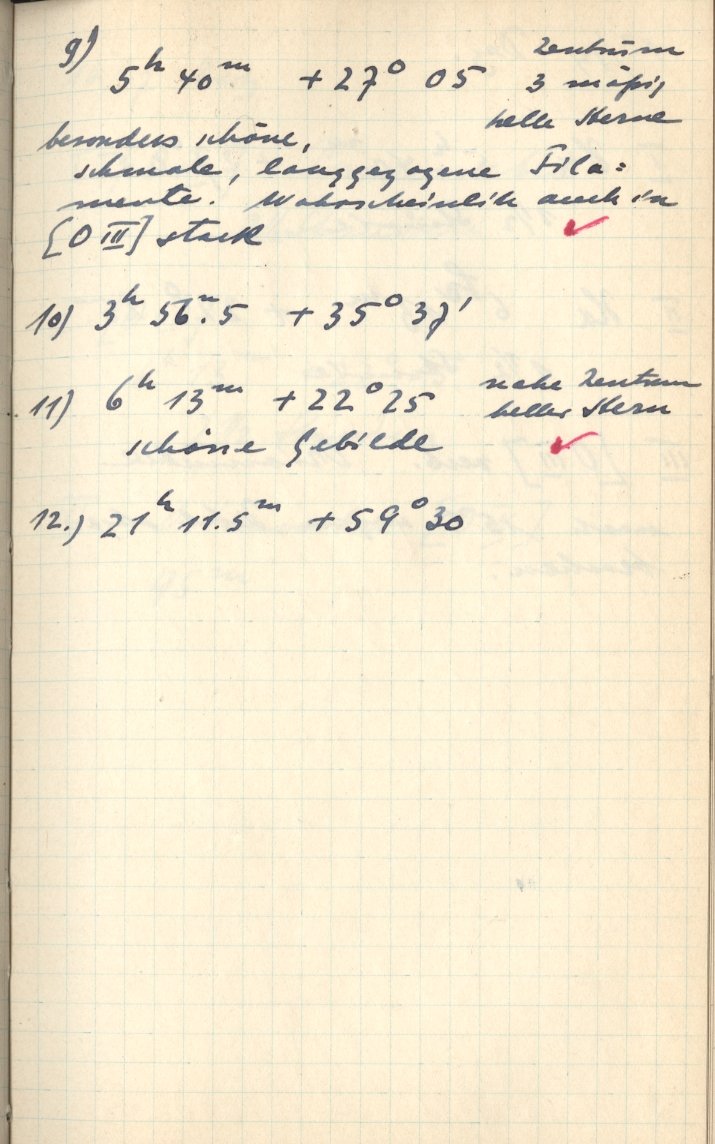 9)
5h 40m +27° 05 Zentrum
3 mäßig
helle Sterne
besonders schöne,
schmale, langgezogene Fila=
mente. Wahrscheinlich auch in
[O III] stark ✓
10) 3h 56m.5 +35° 37'
11) 6h 13m +22° 25 nahe Zentrum
heller Stern
schöne Gebilde ✓
12.) 21h 11.5m +59° 30